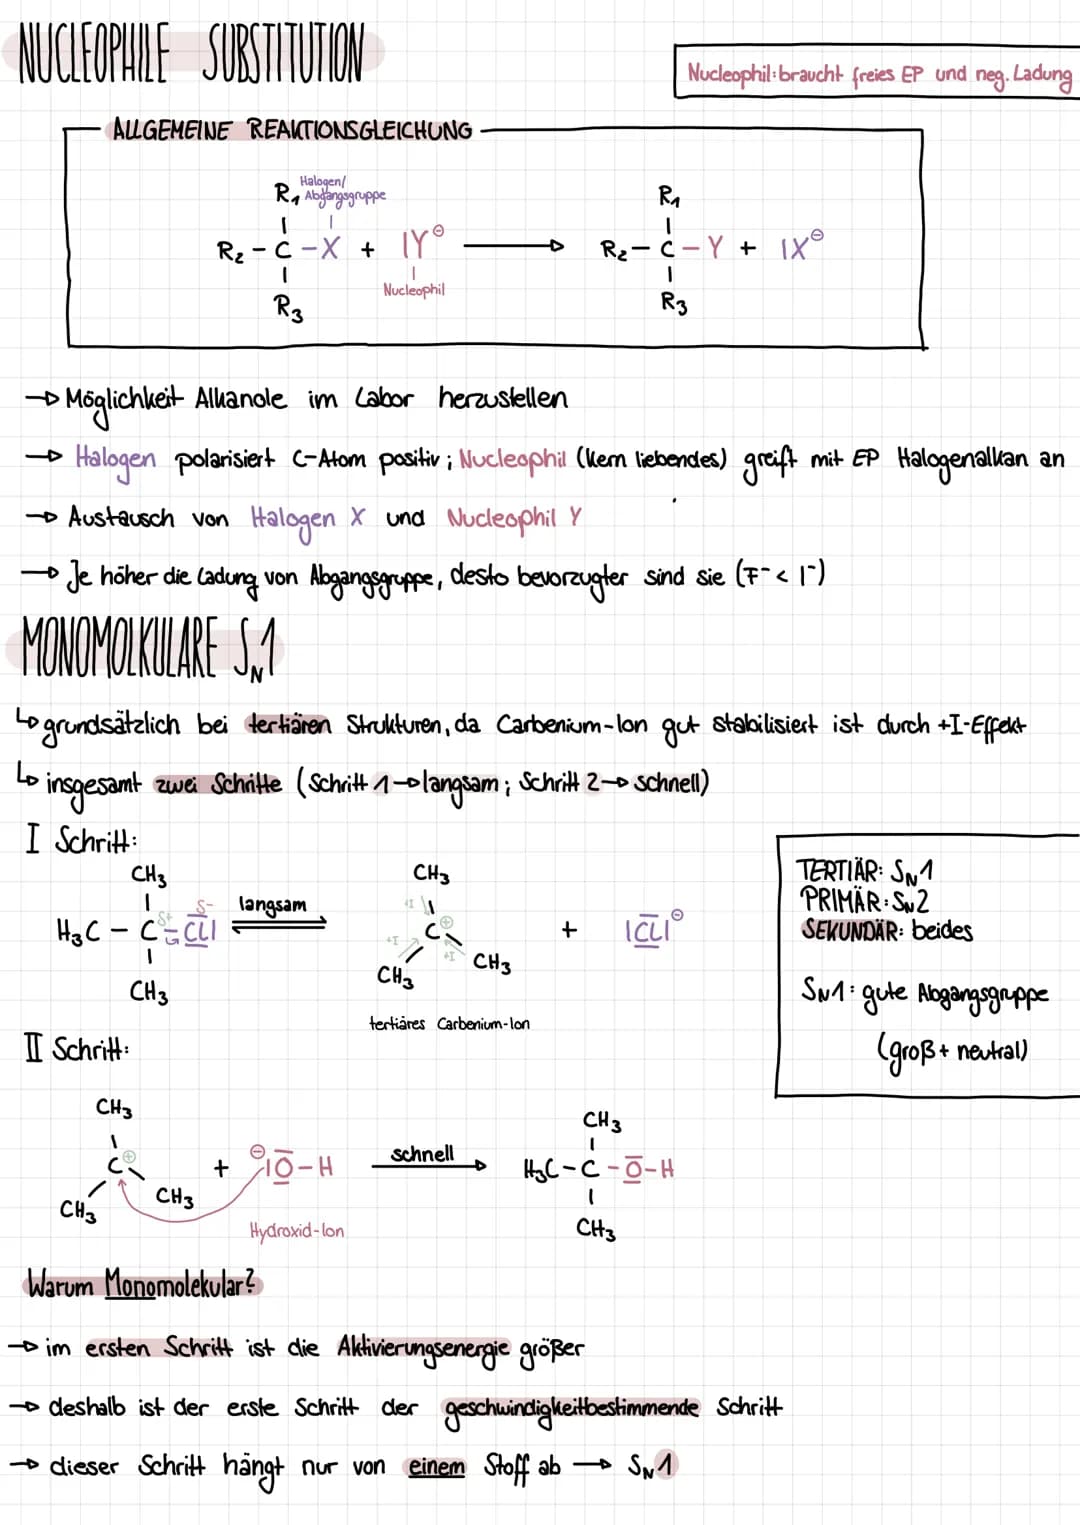 NUCLEOPHILE SUBSTITUTION
Nucleophil: braucht freies EP und neg. Ladung
ALLGEMEINE REAKTIONSGLEICHUNG
R₁ Halogen/
Abgangsgruppe
R₂ - C - X + |Y⊖ → R₂ - C - Y + |X⊖
Nucleophil
R₃
R₁
R₃
→ Möglichkeit Alkanole im Labor herzustellen
→ Halogen polarisiert C-Atom positiv; Nucleophil (Kern liebendes) greift mit EP Halogenalkan an
→ Austausch von Halogen X und Nucleophil Y
→ Je höher die Ladung von Abgangsgruppe, desto bevorzugter sind sie (F⁻ < I⁻)
MONOMOLKULARE SN1
↳ grundsätzlich bei tertiären Strukturen, da Carbenium-Ion gut stabilisiert ist durch +I-Effekt
↳ insgesamt zwei Schritte (Schritt 1 → langsam; Schritt 2 → schnell)
I Schritt:
CH₃
H₃C - C - Cl| δ+ δ-
CH₃
langsam
CH₃
+I
C ⊕
+I
+I
CH₃
CH₃
tertiäres Carbenium-Ion
+ |Cl|⊖
TERTIÄR: SN1
PRIMÄR: SN2
SEKUNDÄR: beides
SN1: gute Abgangsgruppe
(groß + neutral)
II Schritt:
CH₃
C ⊕
CH₃
CH₃
+ ⊖|O-H
Hydroxid-Ion
schnell
CH₃
H₃C - C - O - H
CH₃
Warum Monomolekular?
→ im ersten Schritt ist die Aktivierungsenergie größer
→ deshalb ist der erste Schritt der geschwindigkeitbestimmende Schritt
→ dieser Schritt hängt nur von einem Stoff ab → SN1